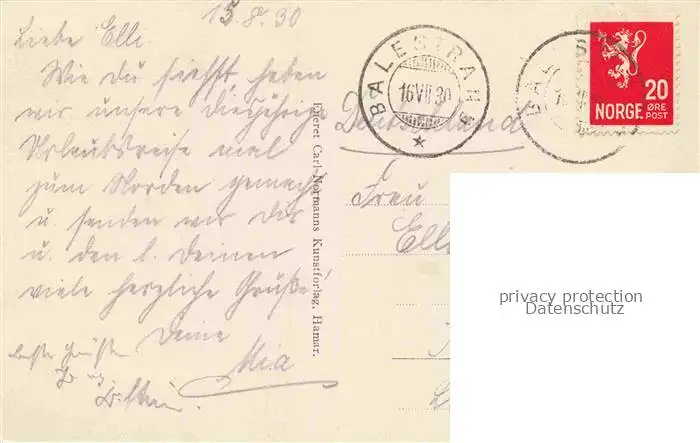 15.8.30
Liebe Elli.
Wie du siehst haben
wir unsere diesjährige
Urlaubsreise mal
zum Norden gemacht
u. senden wir Dir
u. den l. Deinen
viele herzliche Grüße
Deine
Mia
beste Grüße
Eneret Carl Normanns Kunstforlag, Hamar.
BALESTRAND
16 VII 30
Deutschland
Frau
Elli
20
NORGE ØRE
POST
privacy protection
Datenschutz